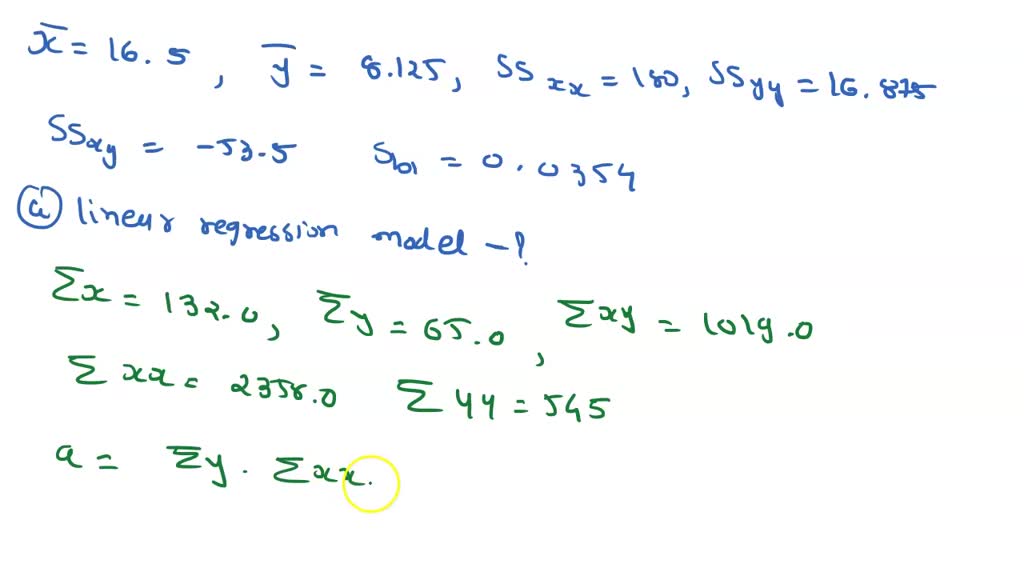 x̄ = 16.5 , ȳ = 8.125, SSxx = 180, SSyy = 16.875
SSxy = -53.5 Sb1 = 0.0354
(a) linear regression model - ?
Σx = 132.0, Σy = 65.0, Σxy = 1019.0
Σxx = 2358.0 Σyy = 545
a = Σy . Σxx.